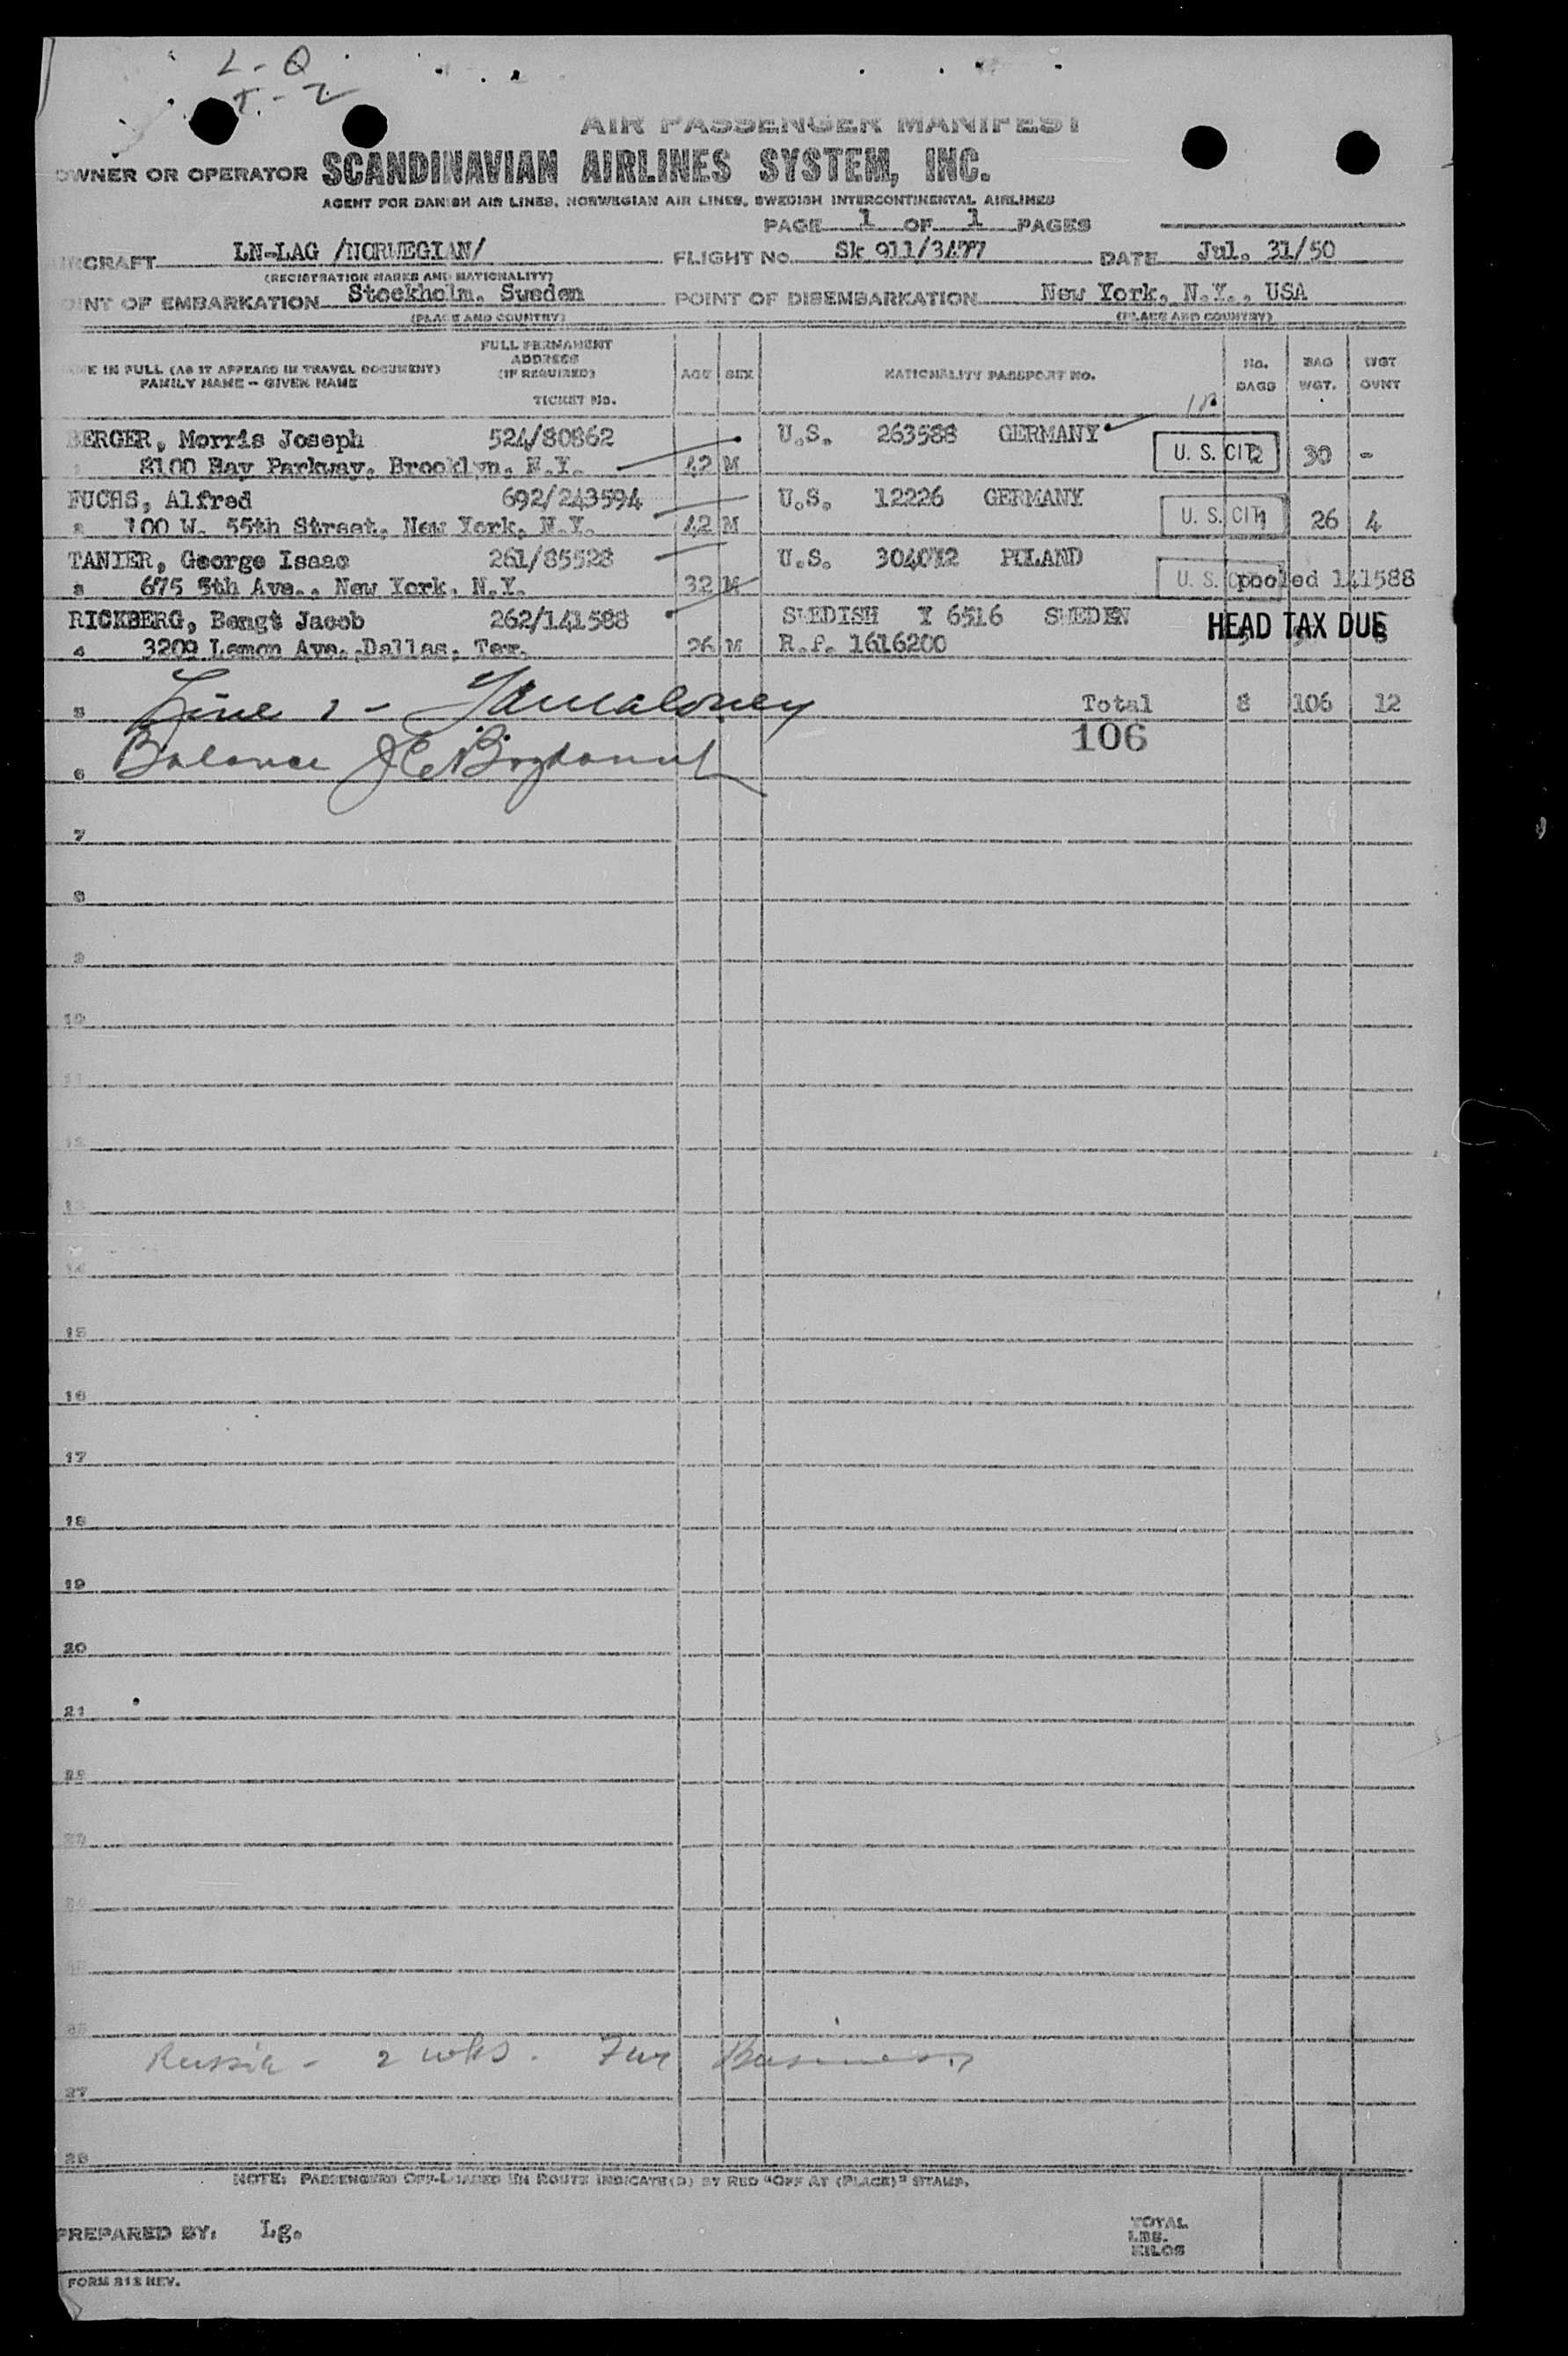 L - Q
T. - 2
AIR PASSENGER MANIFEST
OWNER OR OPERATOR SCANDINAVIAN AIRLINES SYSTEM, INC.
AGENT FOR DANISH AIR LINES, NORWEGIAN AIR LINES, SWEDISH INTERCONTINENTAL AIRLINES
PAGE 1 OF 1 PAGES
AIRCRAFT LN-LAG /NORWEGIAN/ FLIGHT No. Sk 911/3477 DATE Jul. 31/50
(REGISTRATION MARKS AND NATIONALITY)
POINT OF EMBARKATION Stockholm, Sweden POINT OF DISEMBARKATION New York, N.Y., USA
(PLACE AND COUNTRY) (PLACE AND COUNTRY)
NAME IN FULL (AS IT APPEARS IN TRAVEL DOCUMENT)
FAMILY NAME - GIVEN NAME
FULL PERMANENT
ADDRESS
(IF REQUIRED)
TICKET No.
AGE SEX NATIONALITY PASSPORT NO. No. BAGS BAG WGT. WGT OVWT
BERGER, Morris Joseph 524/80862 U.S. 263588 GERMANY
8100 Bay Parkway, Brooklyn, N.Y. 42 M U. S. CIT 2 30 -
FUCHS, Alfred 692/243594 U.S. 12226 GERMANY
2 100 W. 55th Street, New York, N.Y. 42 M U. S. CIT 1 26 4
TANIER, George Isaac 261/85528 U.S. POLAND
3 675 5th Ave., New York, N.Y. 32 M U. S. pooled 141588
RICKBERG, Bengt Jacob 262/141588 SWEDISH Y 6516 SWEDEN HEAD TAX DUE
4 3209 Lemon Ave., Dallas, Tex. 26 M R.P. 1616200
5 Line 1 - Total 8 106 12
106
6 Balance
7
8
9
10
11
12
13
14
15
16
17
18
19
20
21
22
23
24
25
26
Russia - 2 wks. Fur Business
27
28
NOTE: PASSENGERS OFF-LOADED EN ROUTE INDICATE(D) BY RED "OFF AT (PLACE)" STAMP.
PREPARED BY: Lg. TOTAL
LBS.
KILOS
FORM 212 REV.